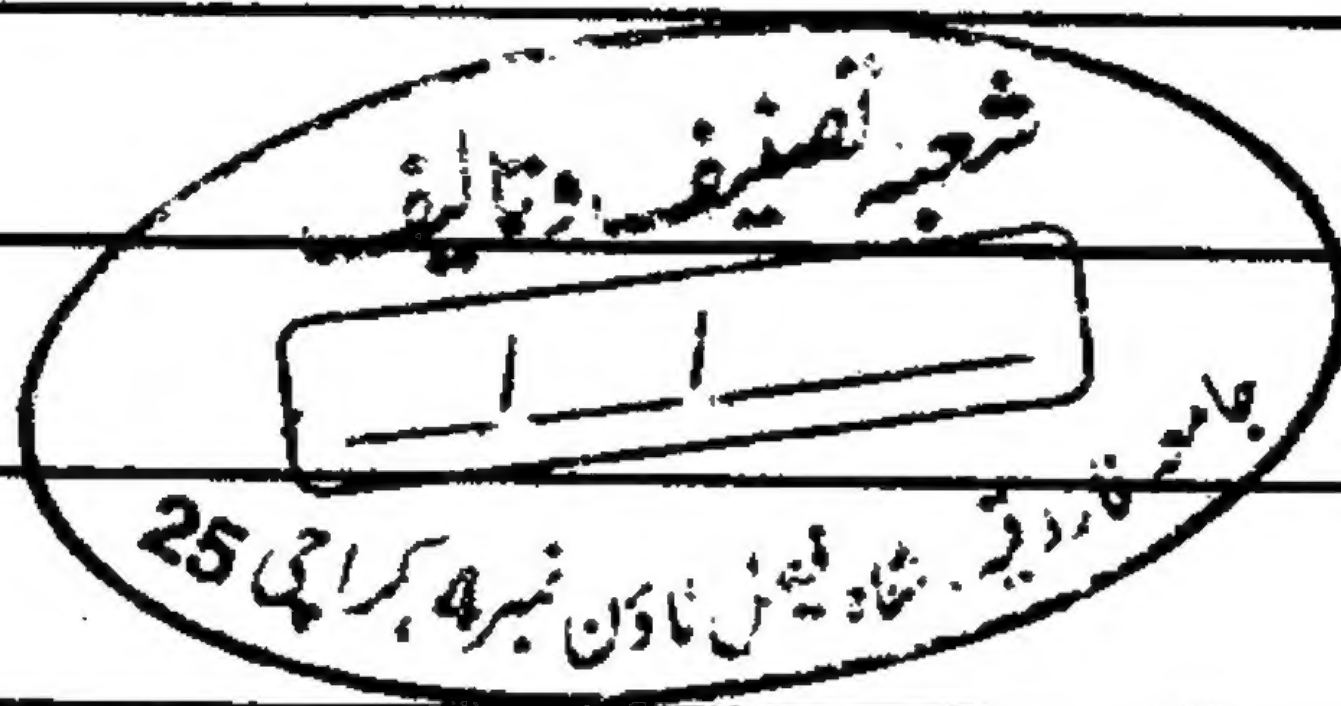 شعبہ تصنیف و تالیف
جامعہ فاروقیہ۔ شاہ فیصل ٹاؤن نمبر 4 کراچی 25